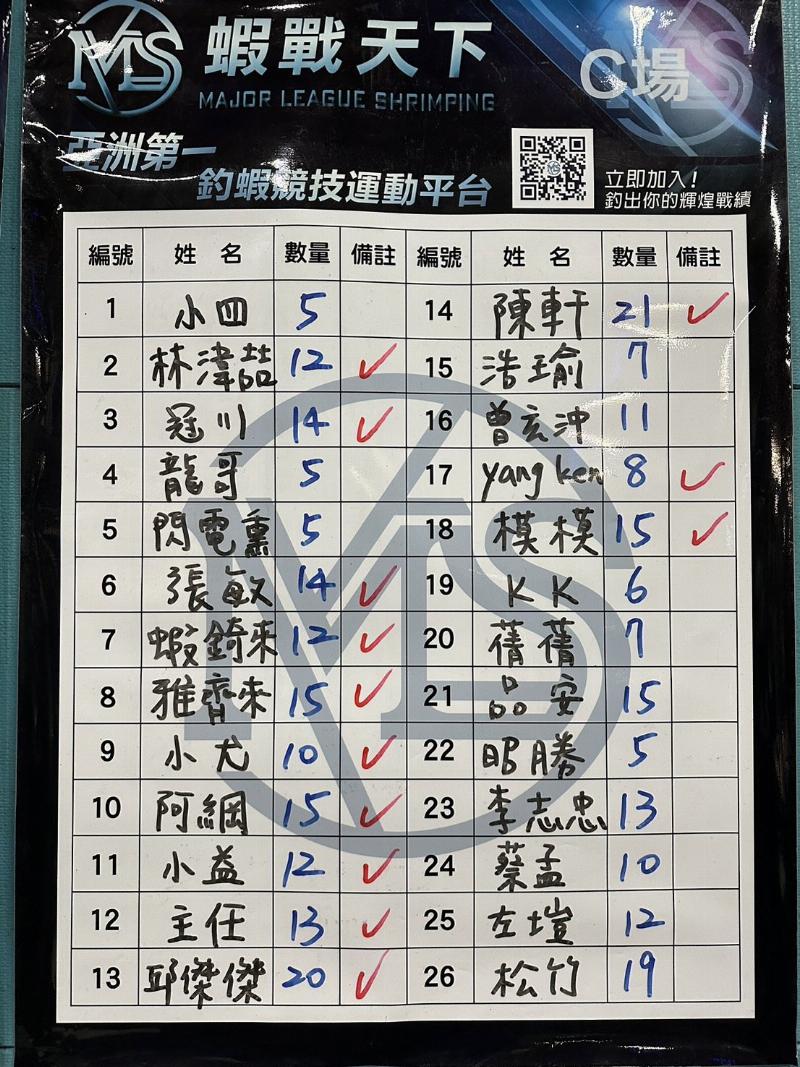 MLS 蝦戰天下 C場
MAJOR LEAGUE SHRIMPING
亞洲第一
釣蝦競技運動平台
立即加入!
釣出你的輝煌戰績
編號 姓名 數量 備註 編號 姓名 數量 備註
1 小四 5 14 陳軒 21 ✓
2 林湋喆 12 ✓ 15 浩瑜 7
3 冠川 14 ✓ 16 曾玄沖 11
4 龍哥 5 17 yang ken 8 ✓
5 閃電熏 5 18 模模 15 ✓
6 張敏 14 ✓ 19 KK 6
7 蝦錡來 12 ✓ 20 蒨蒨 7
8 雅齊來 15 ✓ 21 品安 15
9 小尤 10 ✓ 22 昭勝 5
10 阿綱 15 ✓ 23 李志忠 13
11 小益 12 ✓ 24 蔡孟 10
12 主任 13 ✓ 25 左塏 12
13 邱傑傑 20 ✓ 26 松竹 19